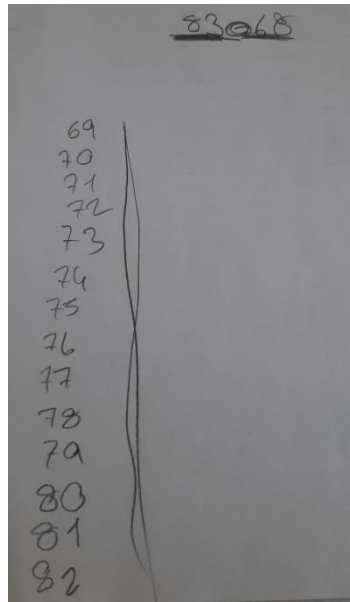 83-68
69
70
71
72
73
74
75
76
77
78
79
80
81
82